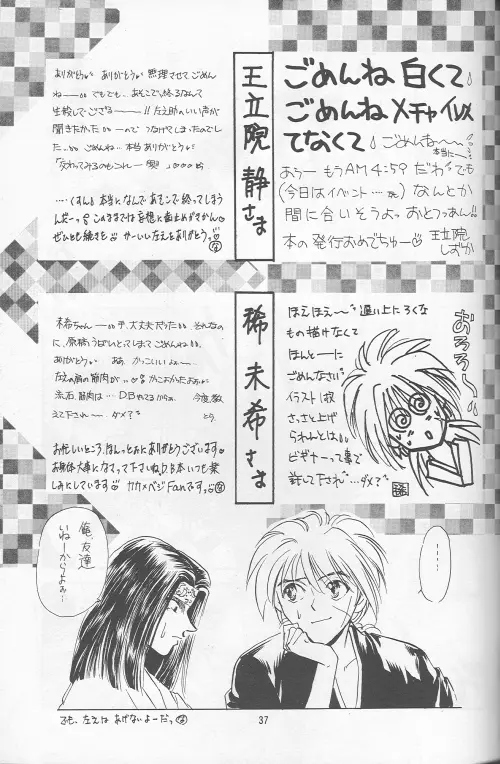 王立院 静さま
ごめんね 白くて
ごめんね メチャイソメ
てなくて
ごめんね〜〜
本当に〜
あうー もうAM4:59 だわ でも
(今日はイベント…… なんとか
間に合いそうよっ おとっつぁん!!
本の発行おめでちゅー♡
王立院
しずか
ありがとう ありがとう 無理させて、ごめん
ねー でもでも、あそこで終るなんて
生殺しでござる〜!! 左之助のいい声が
聞きたかった
ので つなげてしまったのでし
た ごめんね 本当ありがとう
……くすん 本当になんであそこで終ってしまう
んだーっ このままでは妄想に歯止めがきかん
ぜひとも続きを かーいい左えをありがとうっ
稀 未希さま
ほえほえ〜 遅い上にろくな
もの描けなくて
ほんとーに
ごめんなさい
イラスト1枚
さっさと上げ
られんとは
ビギナーって事で
許して下され… ダメ?
おろろん
未希ちゃん 大丈夫だった それなの
に、原稿うばいとってしまってごめんねー
ありがとう ああ、かっこいいよー
左之の肩の筋肉が
流石、筋肉は… D.Bやってるからね 今度、教
えて下されー ダメ?
お忙しいところ、ほんっとぉにありがとうございます
お身体大事になさって下さいね D.B本いつも楽
しみにしています カカ×ベジFanですっ
俺、友達
いねーからよぉ…
……
でも、左えは あげないよーだっ
37